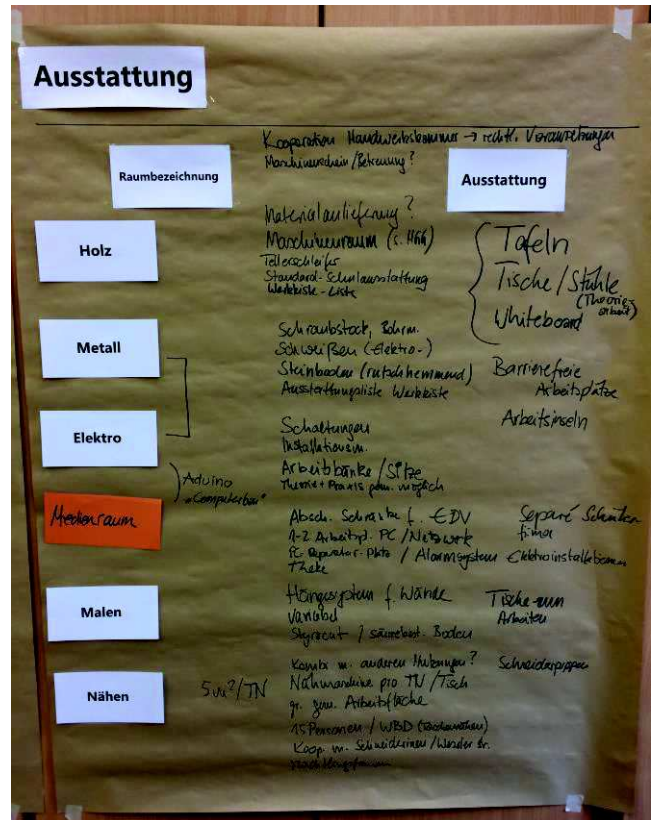 Ausstattung
Kooperation Handwerkskammer → rechtl. Voraussetzungen
Maschinenschein / Betreuung?
Raumbezeichnung
Ausstattung
Holz
Materialanlieferung?
Maschinenraum (s. HGG)
Tellerschleifer
Standard-Schulausstattung
Werkkiste-Liste
Tafeln
Tische / Stühle
(Theorie-
arbeit)
Whiteboard
Metall
Schraubstock, Bohrm.
Schweißen (Elektro-)
Steinboden (rutschhemmend)
Ausstattungsliste Werkkiste
Barrierefreie
Arbeitsplätze
Arbeitsinseln
Elektro
Schaltungen
Installationsm.
Arbeitsbänke / Sitze
Theorie + Praxis möglich
Aduino
"Computerbau"
Medienraum
Absch. Schränke f. EDV
1-2 Arbeitspl. PC / Netzwerk
PC Reparatur-Platz / Alarmsystem
Theke
Separé Schüler
firma
Malen
Hängesystem f. Wände
variabel
säurebest. Boden
Tische zum
Arbeiten
Nähen
5m²/TN
Kombi m. anderen Nutzungen?
Nähmaschine pro TN / Tisch
gr. gem. Arbeitsfläche
15 Personen / WBD
Koop. m. Schneiderinnen
Schneiderpuppen